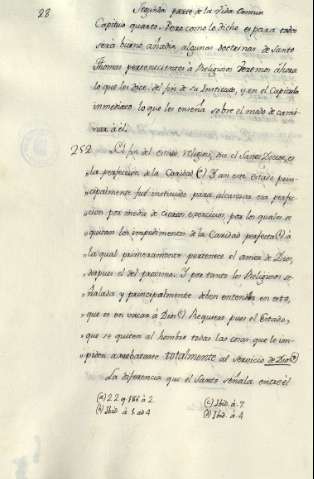 28
Segunda parte de la Vida Comun
Capitulo quarto. Pero como lo dicho es para todos
será bueno añadir algunas doctrinas de Santo
Thomas pertenecientes à Religiosos. Veremos ahora
lo que les dice del fin de su Instituto, y en el Capitulo
inmediato lo que les enseña sobre el modo de cami-
nar à él.
252 El fin del estado religioso, dice el Santo Doctor, es
„la perfeccion de la Caridad (a) Y an este Estado prin-
„cipalmente fué instituido para alcanzar esa perfec-
„cion por medio de ciertos exercicios, por los quales se
„quitan los impedimentos de la Caridad perfecta (b) à
„la qual primeramente pertenece el amor de Dios,
„despues el del proximo. Y por tanto los Religiosos se-
„ñalada y principalmente deben entender en esto,
„que es en vacar à Dios (c) Requiere pues el Estado,
„que se quiten al hombre todas las cosas que le im-
„piden arrebatarse totalmente al servicio de Dios (d)
La diferencia que el Santo señala entre el
(a) 2 2 q. 186 à 2
(b) Ibid. à 1 ad 4
(c) Ibid. à 7
(d) Ibid. à 4